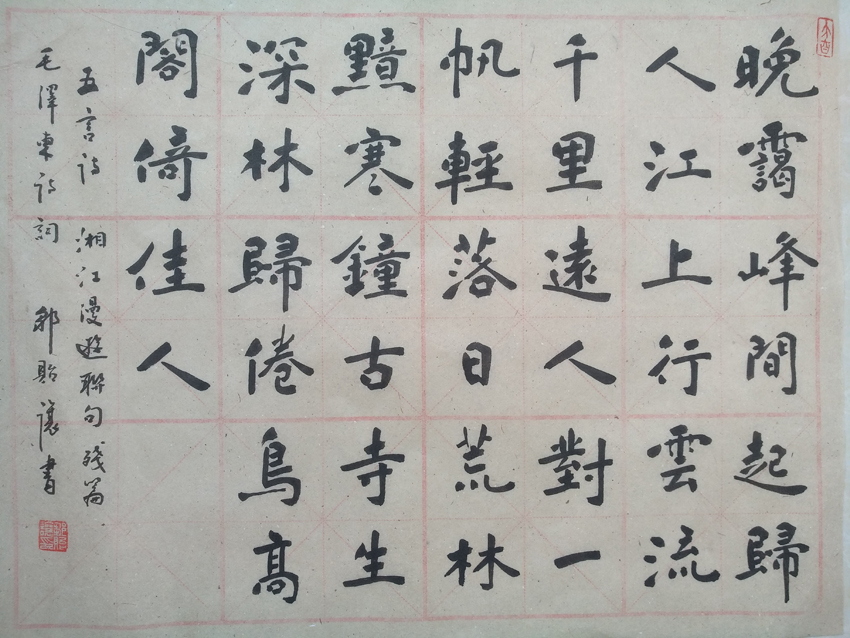 晚靄峰間起歸
人江上行雲流
千里遠人對一
帆輕落日荒林
黯寒鐘古寺生
深林歸倦鳥高
閣倚佳人
五言詩 湘江漫遊聯句 殘篇
毛澤東詩詞 鄒貽讓書